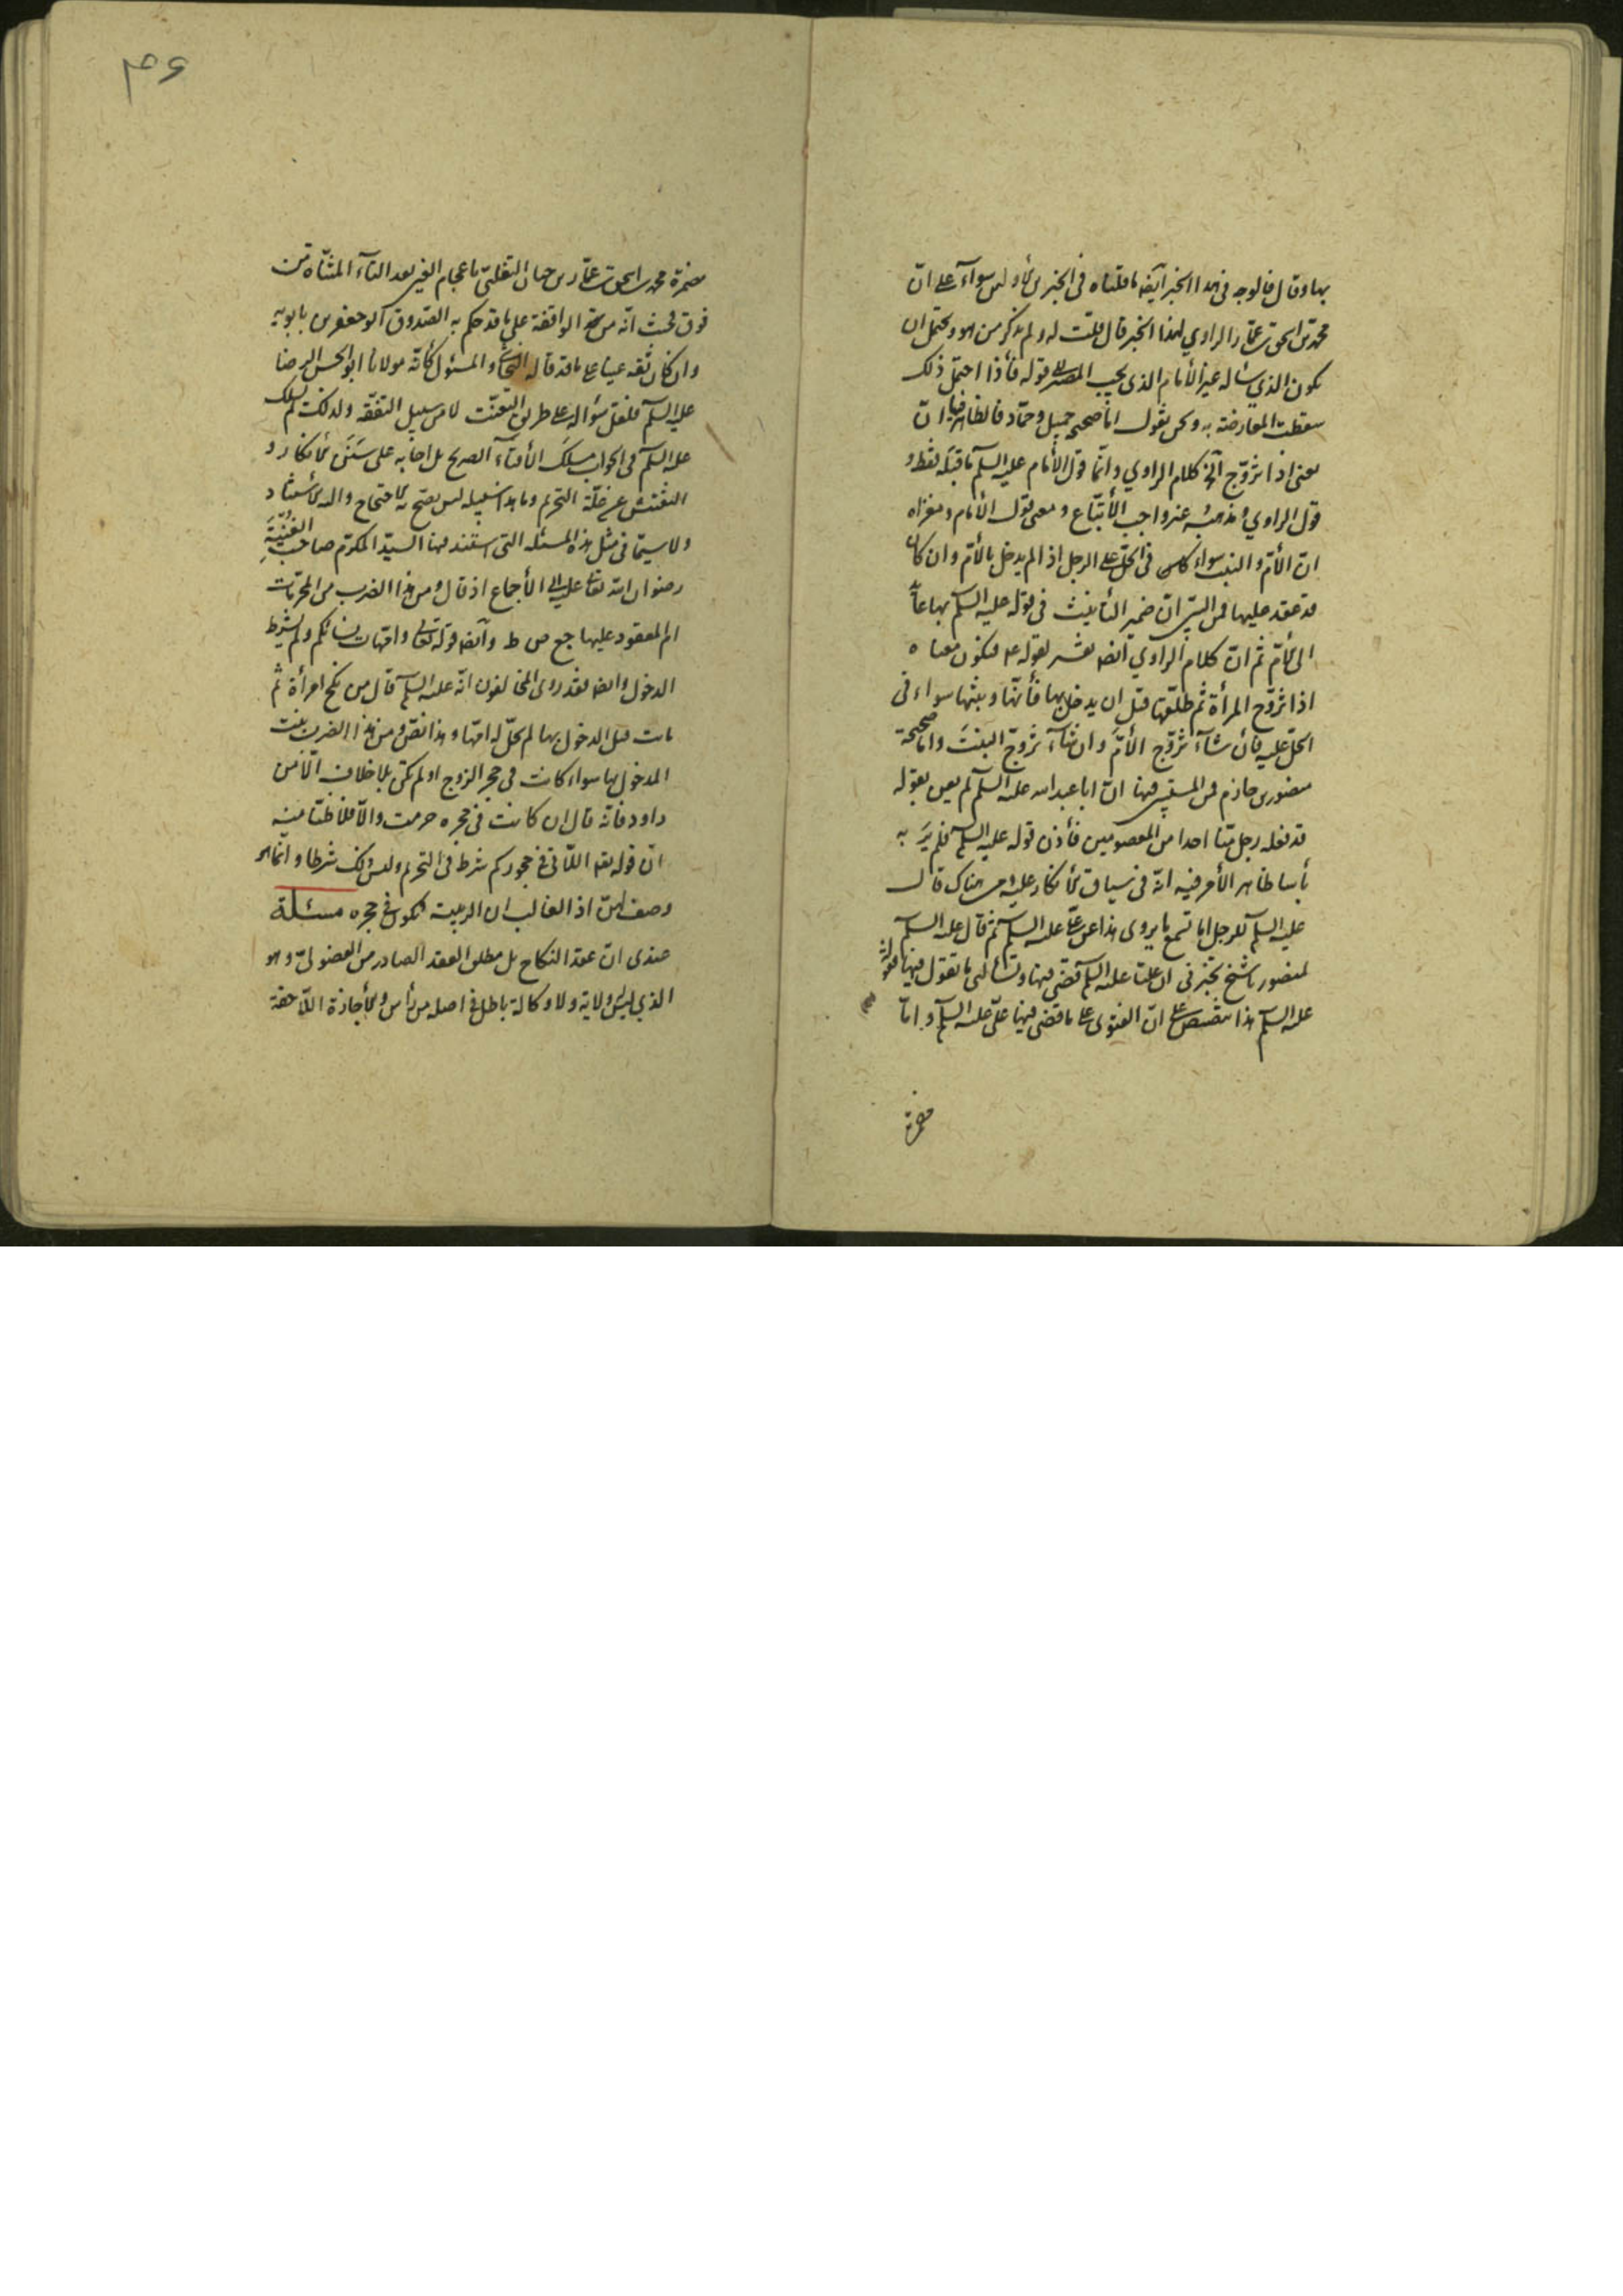 بها وقال فالوجه فى هذا الخبر ايضا ما قلناه فى الخبرين الأولين سوآء على انّ
محمد بن اسحق بن عمّار الراوي لهذا الخبر قال قلت له ولم يذكر من هو ويحتمل ان
يكون الذي سأله غير الأمام الذى يجب المصير الى قوله فأذا احتمل ذلك
سقطت المعارضة به ونحن نقول امّا صحيح جميل وحمّاد فالظاهر فيها انّ
معنى اذا تزوّج آلخ كلام الراوي وانّما قول الأمام عليه السلم ما قبله فقط و
قول الراوي ومذهبه غير واجب الأتّباع ومعنى قول الأمام ومغزاه
انّ الأمّ والبنت سواء كانتا فى الحلّ على الرجل اذا لم يدخل بالأمّ وان كان
قد عقد عليها فمن البيّن انّ ضمير التأنيث فى قوله عليه السلم بها عآئد
الى الأمّ ثم انّ كلام الراوي ايضا تفسير لقوله ع فيكون معناه
اذا تزوّج المرأة ثم طلّقها قبل ان يدخل بها فأنّها وبنتها سواء فى
الحلّ عليه فأن شآء تزوّج الأمّ وان شآء تزوّج البنت وامّا صحيحة
منصور بن حازم فمن المستبين فيها انّ ابا عبد الله عليه السلم لم يعن بقوله
قد فعله رجل منّا احدا من المعصومين فأذن قوله عليه السلم فلم يَرَ به
بأسا ظاهر الأمر فيه انّه فى سياق الأنكار عليه ومن هناك قال
عليه السلم للرجل اما تسمع ما يروى هذا عن علىّ عليه السلم ثم قال عليه السلم
لمنصور يا شيخ تخبرنى انّ عليّا عليه السلم قضى فيها وتسألنى ما تقول فيها فقوله
عليه السلم هذا تنصيص على انّ الفتوى على ما قضى فيها علىّ عليه السلم وامّا
مضمرة
مضمرة محمد بن اسحق بن عمّار بن حيان التغلبىّ باعجام الغين بعد التآء المثنّاة من
فوق فحيث انّه من الواقفة على ما قد حكم به الصدوق ابو جعفر بن بابويه
وان كان ثقة عينا على ما قد قاله النجاشى والمسئول كأنّه مولانا ابو الحسن الرضا
عليه السلم فلعلّ سؤاله على طريق التعنّت لا من سبيل التفقّه ولذلك لم يسلك
عليه السلم فى الجواب مسلك الأفتآء الصريح بل اجابه على سَنَن الأنكار و
التفتيش عن علّة التحريم وما هذا سبيله ليس يصحّ به الأحتجاج واليه الأستناد
ولا سيّما فى مثل هذه المسئلة التى استند فيها السيّد المكرّم صاحب الغُنْيَةِ
رضوان الله تعالى عليه الى الأجماع اذ قال ومن هذا الضرب من المحرّمات
امّ المعقود عليها جع ص ط وايضا قوله تعالى وامّهات نسائكم ولم يشترط
الدخول وايضا فقد روى المخالفون انّه عليه السلم قال من نكح امرأة ثم
ماتت قبل الدخول بها لم تحلّ له امّها وهذا نصّ ومن هذا الضرب بنت
المدخول بها سواء كانت فى حجر الزوج او لم تكن بلا خلاف الّا من
داود فانّه قال ان كانت فى حجره حرمت والّا فلا ظنّا منه
انّ قوله تعالى اللّاتى فى حجوركم شرط فى التحريم وليس ذلك شرطا وانّما هو
وصف لهنّ اذ الغالب ان الربيبة تكون فى حجره مسئلة
عندى انّ عقد النكاح بل مطلق العقد الصادر من الفضولىّ وهو
الذي ليس له ولاية ولا وكالة باطل فى اصله من رأس والأجازة اللّاحقة